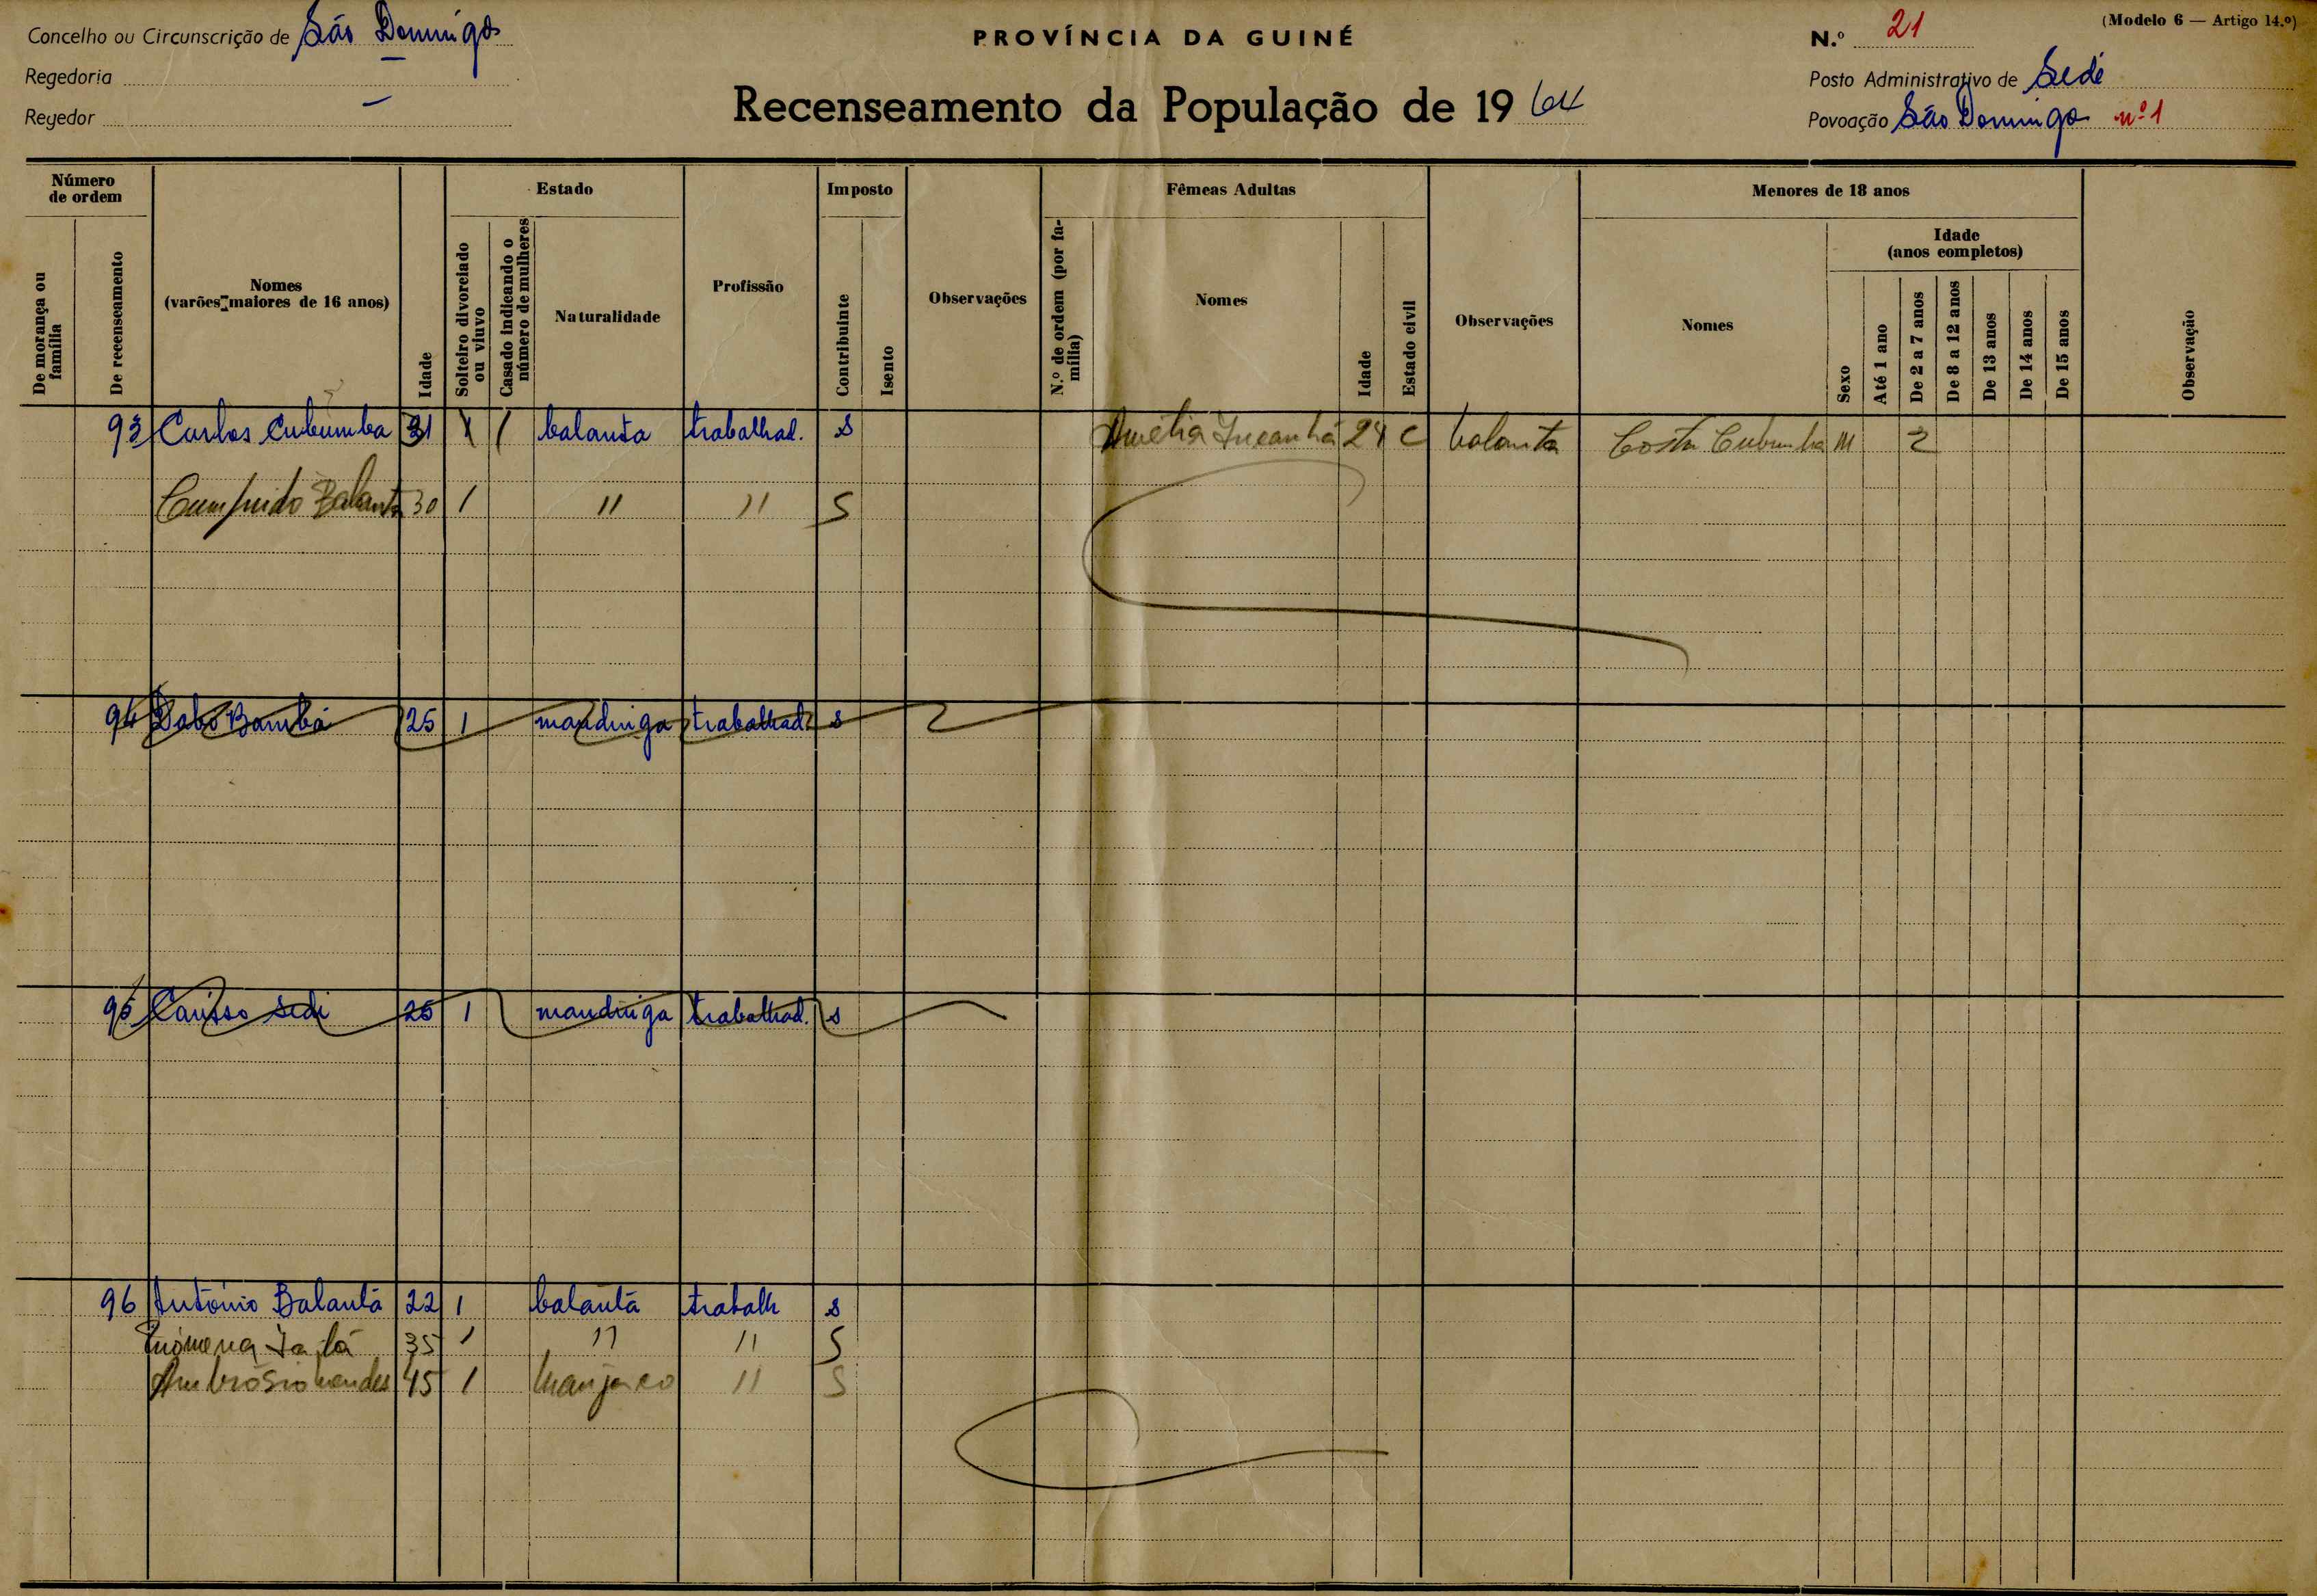 Concelho ou Circunscrição de São Domingos
Regedoria —
Regedor —
PROVÍNCIA DA GUINÉ
Recenseamento da População de 1964
(Modelo 6 — Artigo 14.º)
N.º 21
Posto Administrativo de Sede
Povoação São Domingos nº 1
Número de ordem
De morança ou família
De recenseamento
Nomes
(varões maiores de 16 anos)
Idade
Estado
Solteiro divorciado ou viuvo
Casado indicando o número de mulheres
Naturalidade
Profissão
Imposto
Contribuinte
Isento
Observações
Fêmeas Adultas
N.º de ordem (por família)
Nomes
Idade
Estado civil
Observações
Menores de 18 anos
Nomes
Sexo
Idade
(anos completos)
Até 1 ano
De 2 a 7 anos
De 8 a 12 anos
De 13 anos
De 14 anos
De 15 anos
Observação
93 Carlos Cubumba 31 1 / balanta trabalhad. s Amélia 24 C balanta Costa Cubumba M 2
Balanta 30 1 " " S
94 Dabo Bambá 25 1 mandinga trabalhad. s
95 Sedi 25 1 mandinga trabalhad. s
96 António Balantà 22 1 balantà trabalh s
35 1 " " S
Ambrósio Mendes 45 1 Manjaco " S